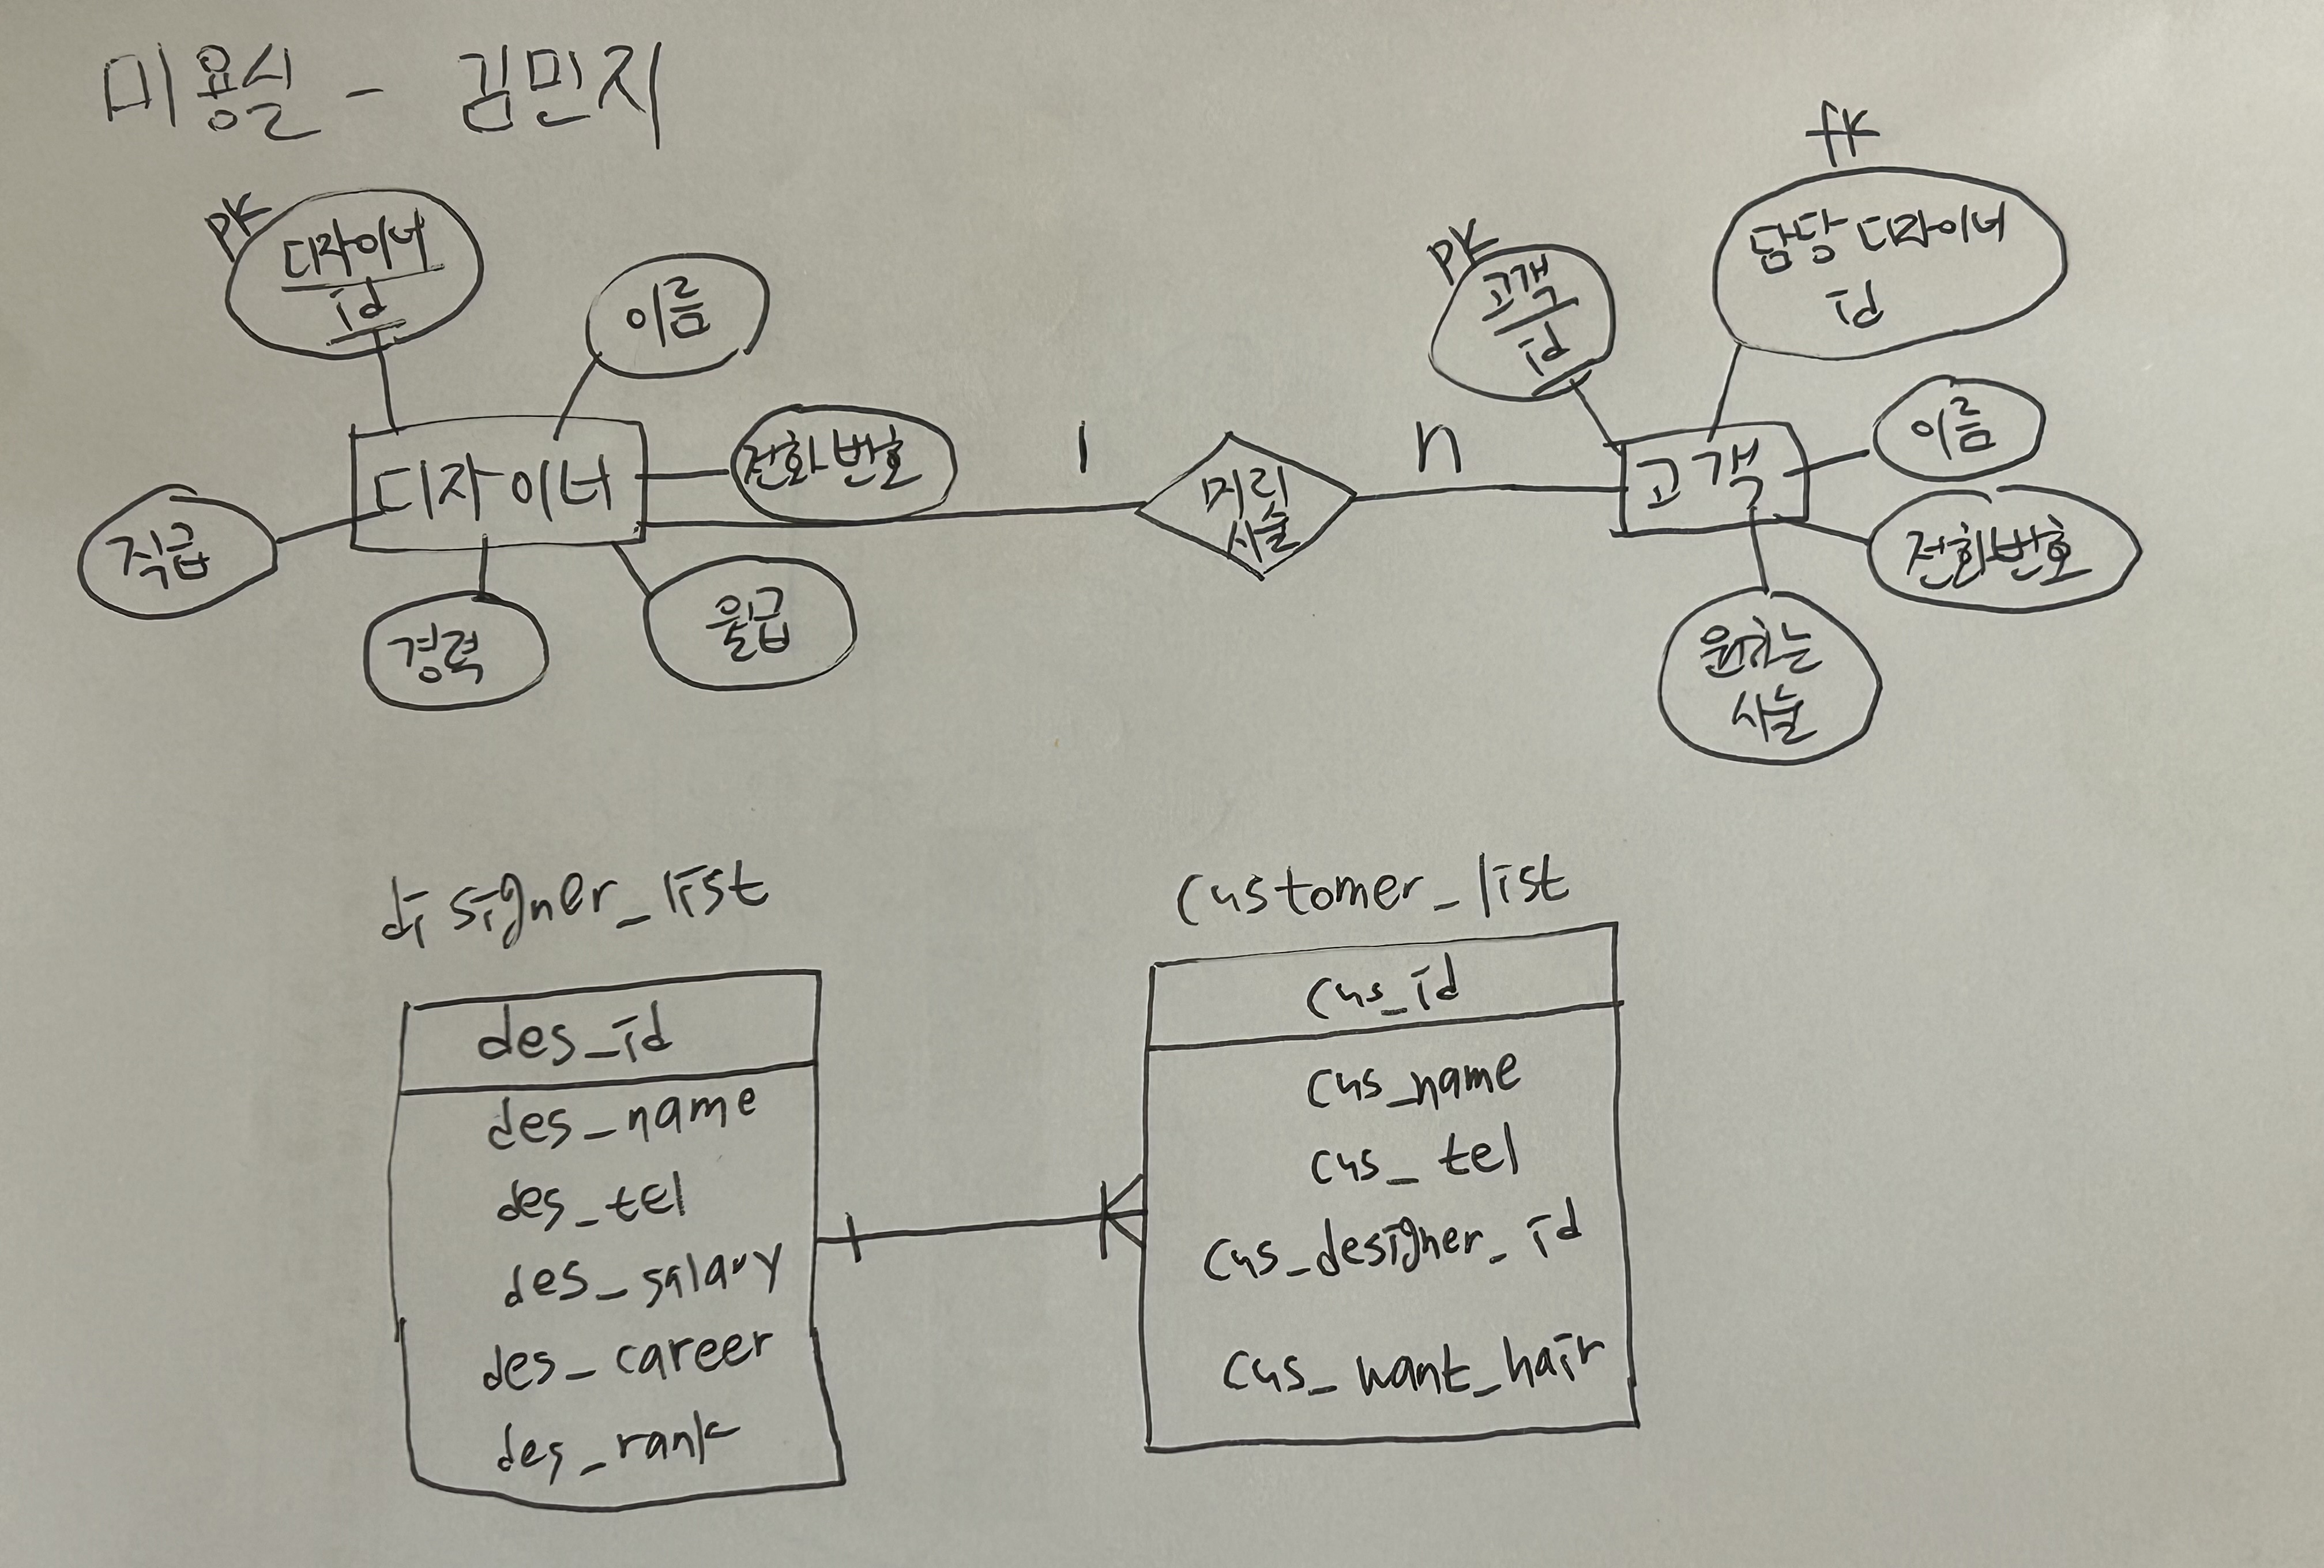 미용실 - 김민지
PK
디자이너
id
이름
전화번호
디자이너
직급
경력
월급
1
머리
시술
n
PK
고객
id
fk
담당 디자이너
id
고객
이름
전화번호
원하는
시술
disigner_list
des_id
des_name
des_tel
des_salary
des_career
des_rank
customer_list
cus_id
cus_name
cus_tel
cus_designer_id
cus_want_hair